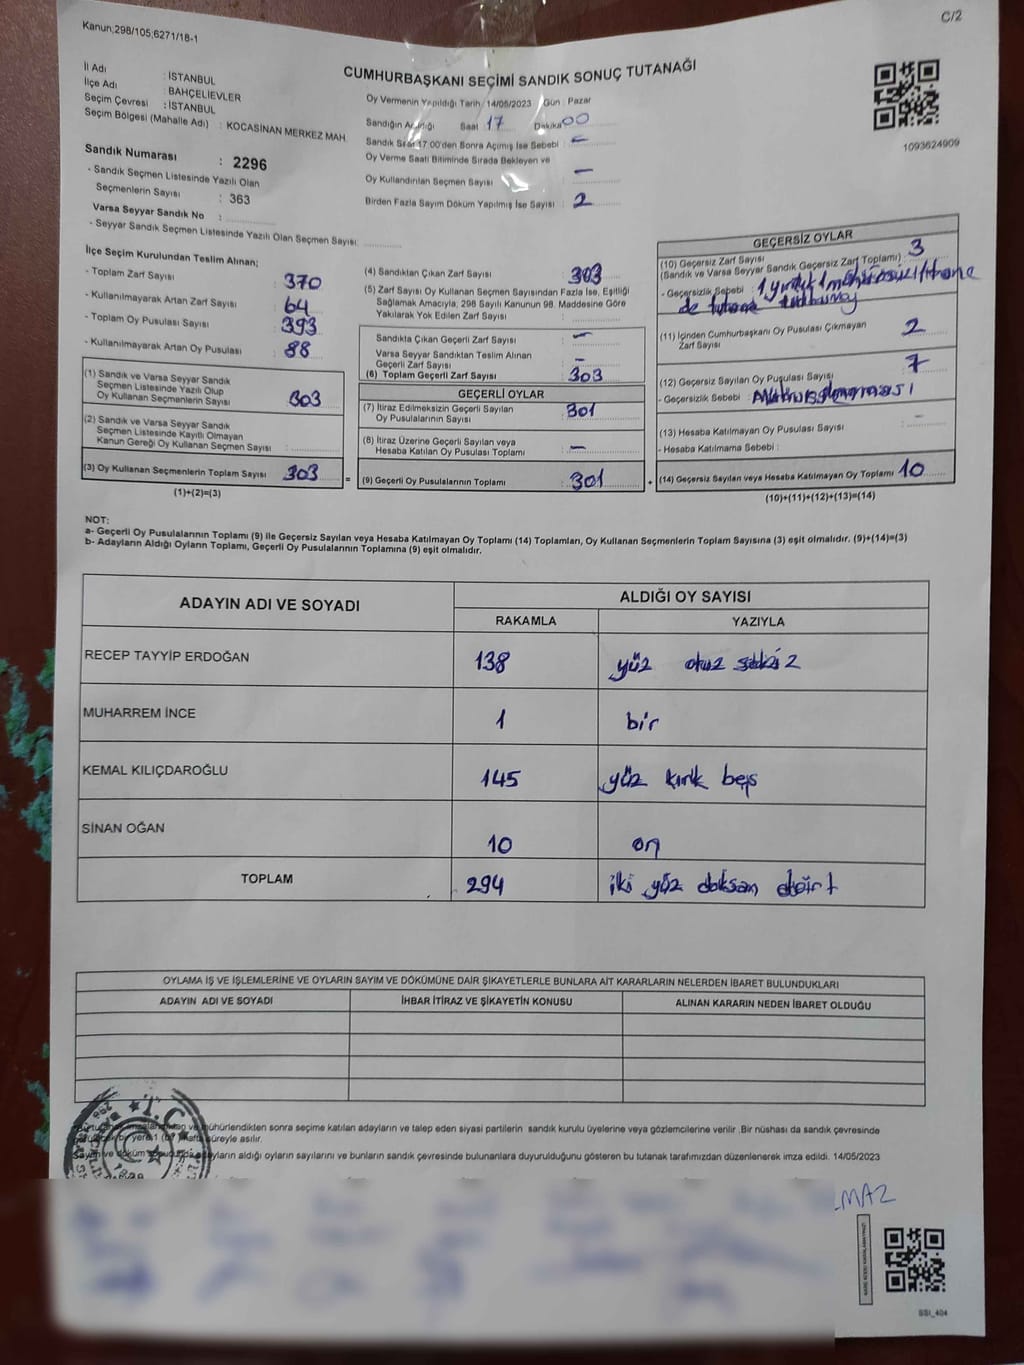 Kanun;298/105;6271/18-1
C/2
CUMHURBAŞKANI SEÇİMİ SANDIK SONUÇ TUTANAĞI
İl Adı : İSTANBUL
İlçe Adı : BAHÇELİEVLER
Seçim Çevresi : İSTANBUL
Seçim Bölgesi (Mahalle Adı) : KOCASİNAN MERKEZ MAH
Sandık Numarası : 2296
- Sandık Seçmen Listesinde Yazılı Olan
Seçmenlerin Sayısı : 363
Varsa Seyyar Sandık No :
- Seyyar Sandık Seçmen Listesinde Yazılı Olan Seçmen Sayısı:
Oy Vermenin Yapıldığı Tarih :14/05/2023 Gün : Pazar
Sandığın Açıldığı Saat 17 Dakika 00
Sandık Saat 17:00'den Sonra Açılmış İse Sebebi : –
Oy Verme Saati Bitiminde Sırada Bekleyen ve
Oy Kullandırılan Seçmen Sayısı : –
Birden Fazla Sayım Döküm Yapılmış İse Sayısı : 2
1093624909
İlçe Seçim Kurulundan Teslim Alınan;
- Toplam Zarf Sayısı : 370
- Kullanılmayarak Artan Zarf Sayısı : 64
- Toplam Oy Pusulası Sayısı : 393
- Kullanılmayarak Artan Oy Pusulası : 88
(1) Sandık ve Varsa Seyyar Sandık
Seçmen Listesinde Yazılı Olup
Oy Kullanan Seçmenlerin Sayısı : 303
(2) Sandık ve Varsa Seyyar Sandık
Seçmen Listesinde Kayıtlı Olmayan
Kanun Gereği Oy Kullanan Seçmen Sayısı :
(3) Oy Kullanan Seçmenlerin Toplam Sayısı : 303
(1)+(2)=(3)
=
(4) Sandıktan Çıkan Zarf Sayısı : 303
(5) Zarf Sayısı Oy Kullanan Seçmen Sayısından Fazla İse, Eşitliği
Sağlamak Amacıyla, 298 Sayılı Kanunun 98. Maddesine Göre
Yakılarak Yok Edilen Zarf Sayısı :
Sandıkta Çıkan Geçerli Zarf Sayısı : –
Varsa Seyyar Sandıktan Teslim Alınan
Geçerli Zarf Sayısı : –
(6) Toplam Geçerli Zarf Sayısı : 303
GEÇERLİ OYLAR
(7) İtiraz Edilmeksizin Geçerli Sayılan
Oy Pusulalarının Sayısı : 301
(8) İtiraz Üzerine Geçerli Sayılan veya
Hesaba Katılan Oy Pusulası Toplamı : –
(9) Geçerli Oy Pusulalarının Toplamı : 301
+
GEÇERSİZ OYLAR
(10) Geçersiz Zarf Sayısı : 3
(Sandık ve Varsa Seyyar Sandık Geçersiz Zarf Toplamı)
- Geçersizlik Sebebi : 1
de
(11) İçinden Cumhurbaşkanı Oy Pusulası Çıkmayan
Zarf Sayısı : 2
(12) Geçersiz Sayılan Oy Pusulası Sayısı : 7
- Geçersizlik Sebebi :
(13) Hesaba Katılmayan Oy Pusulası Sayısı : –
- Hesaba Katılmama Sebebi :
(14) Geçersiz Sayılan veya Hesaba Katılmayan Oy Toplamı : 10
(10)+(11)+(12)+(13)=(14)
NOT:
a- Geçerli Oy Pusulalarının Toplamı (9) ile Geçersiz Sayılan veya Hesaba Katılmayan Oy Toplamı (14) Toplamları, Oy Kullanan Seçmenlerin Toplam Sayısına (3) eşit olmalıdır. (9)+(14)=(3)
b- Adayların Aldığı Oyların Toplamı, Geçerli Oy Pusulalarının Toplamına (9) eşit olmalıdır.
ADAYIN ADI VE SOYADI ALDIĞI OY SAYISI
RAKAMLA YAZIYLA
RECEP TAYYİP ERDOĞAN 138 yüz otuz sekiz
MUHARREM İNCE 1 bir
KEMAL KILIÇDAROĞLU 145 yüz kırk beş
SİNAN OĞAN 10 on
TOPLAM 294 iki yüz doksan dört
OYLAMA İŞ VE İŞLEMLERİNE VE OYLARIN SAYIM VE DÖKÜMÜNE DAİR ŞİKAYETLERLE BUNLARA AİT KARARLARIN NELERDEN İBARET BULUNDUKLARI
ADAYIN ADI VE SOYADI İHBAR İTİRAZ VE ŞİKAYETİN KONUSU ALINAN KARARIN NEDEN İBARET OLDUĞU
mühürlendikten sonra seçime katılan adayların ve talep eden siyasi partilerin sandık kurulu üyelerine veya gözlemcilerine verilir .Bir nüshası da sandık çevresinde
süreyle asılır.
adayların aldığı oyların sayılarını ve bunların sandık çevresinde bulunanlara duyurulduğunu gösteren bu tutanak tarafımızdan düzenlenerek imza edildi. 14/05/2023
T.C.
LMAZ
SSI_404